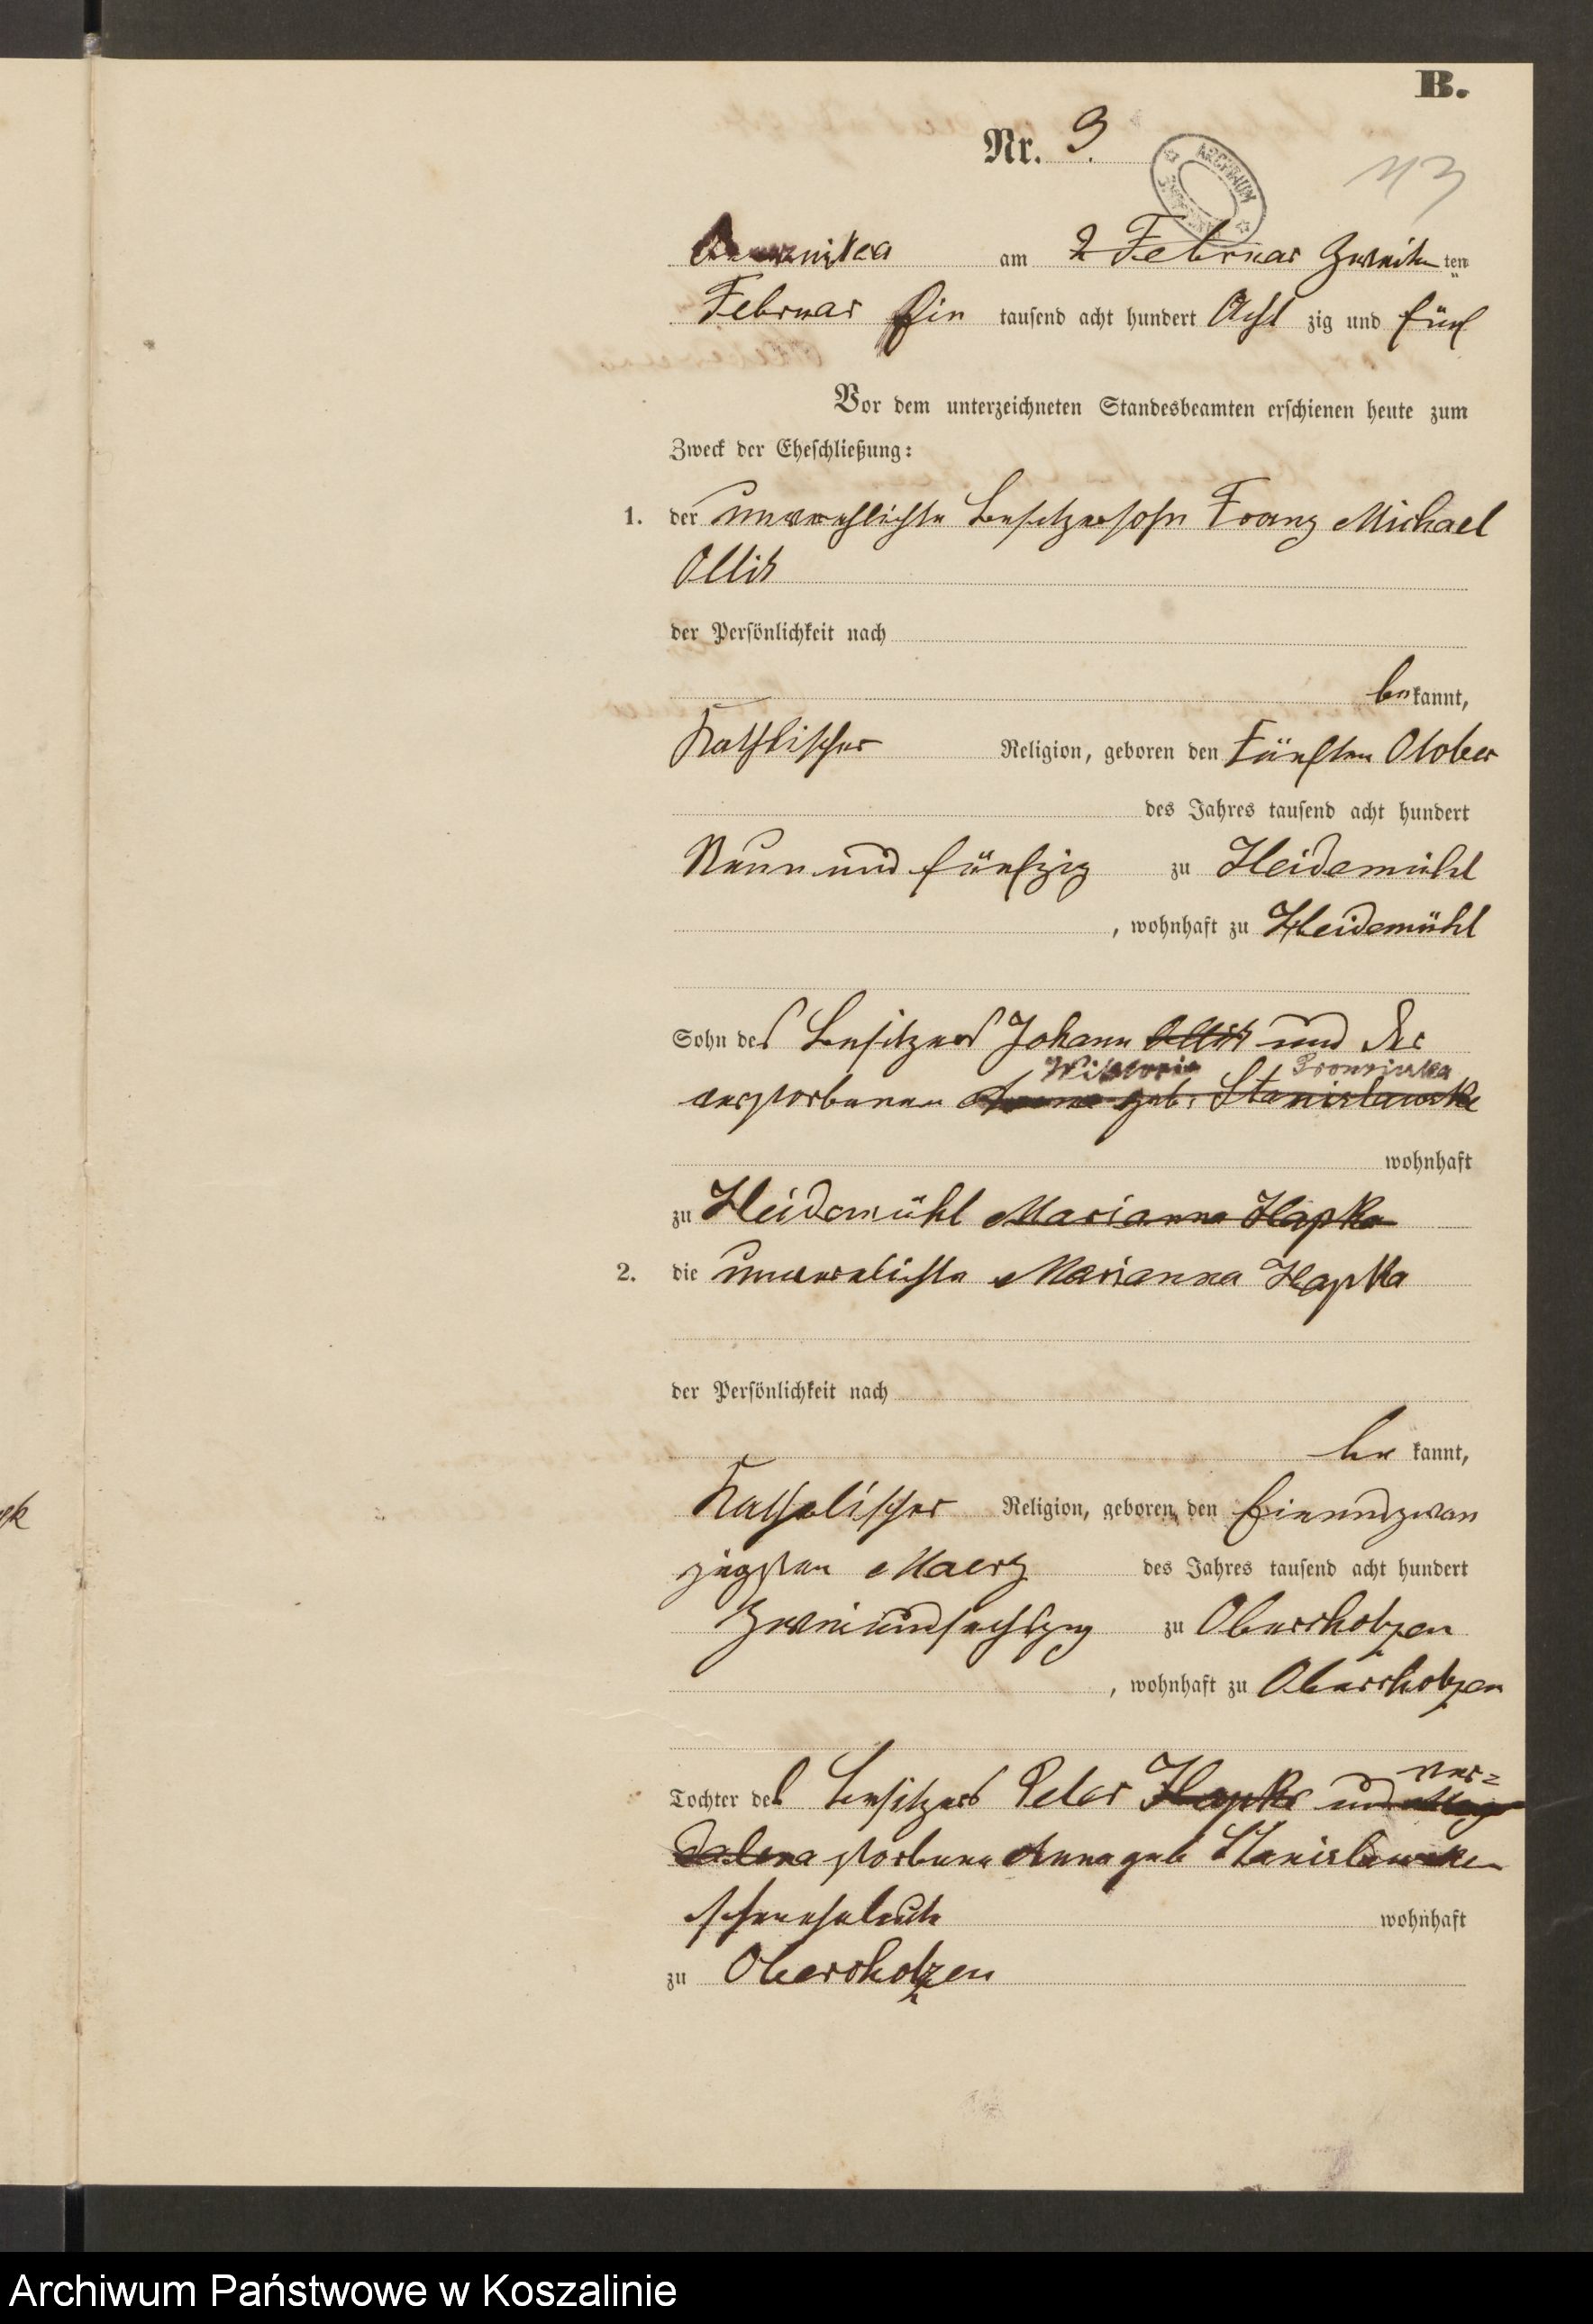 B.
Nr. 9.
ARCHIWUM
113
am 2 Februar Zweiten ten
Februar Ein tausend acht hundert Acht zig und fünf
Vor dem unterzeichneten Standesbeamten erschienen heute zum
Zweck der Eheschließung:
1. der unverehlichte Besitzersohn Franz Michael
Ollik
der Persönlichkeit nach
be kannt,
Katholischer Religion, geboren den Fünften Otober
des Jahres tausend acht hundert
Neun und fünfzig zu Heidemühl
, wohnhaft zu Heidemühl
Sohn des Besitzers Johann Ollik und der
Wiktoria
verstorbenen geb. Stanislawske
wohnhaft
zu Heidemühl Marianna Hapka
2. die unverelichte Marianna Hapka
der Persönlichkeit nach
be kannt,
Katholischer Religion, geboren den Einundzwan
zigsten Maerz des Jahres tausend acht hundert
Zweiundsechszig zu Obersholzen
, wohnhaft zu Obersholzen
Tochter des Besitzers Peter Hapka und Mag ver-
dalena storbene Anna geb Stanislawsken
wohnhaft
zu Obersholzen
Archiwum Państwowe w Koszalinie